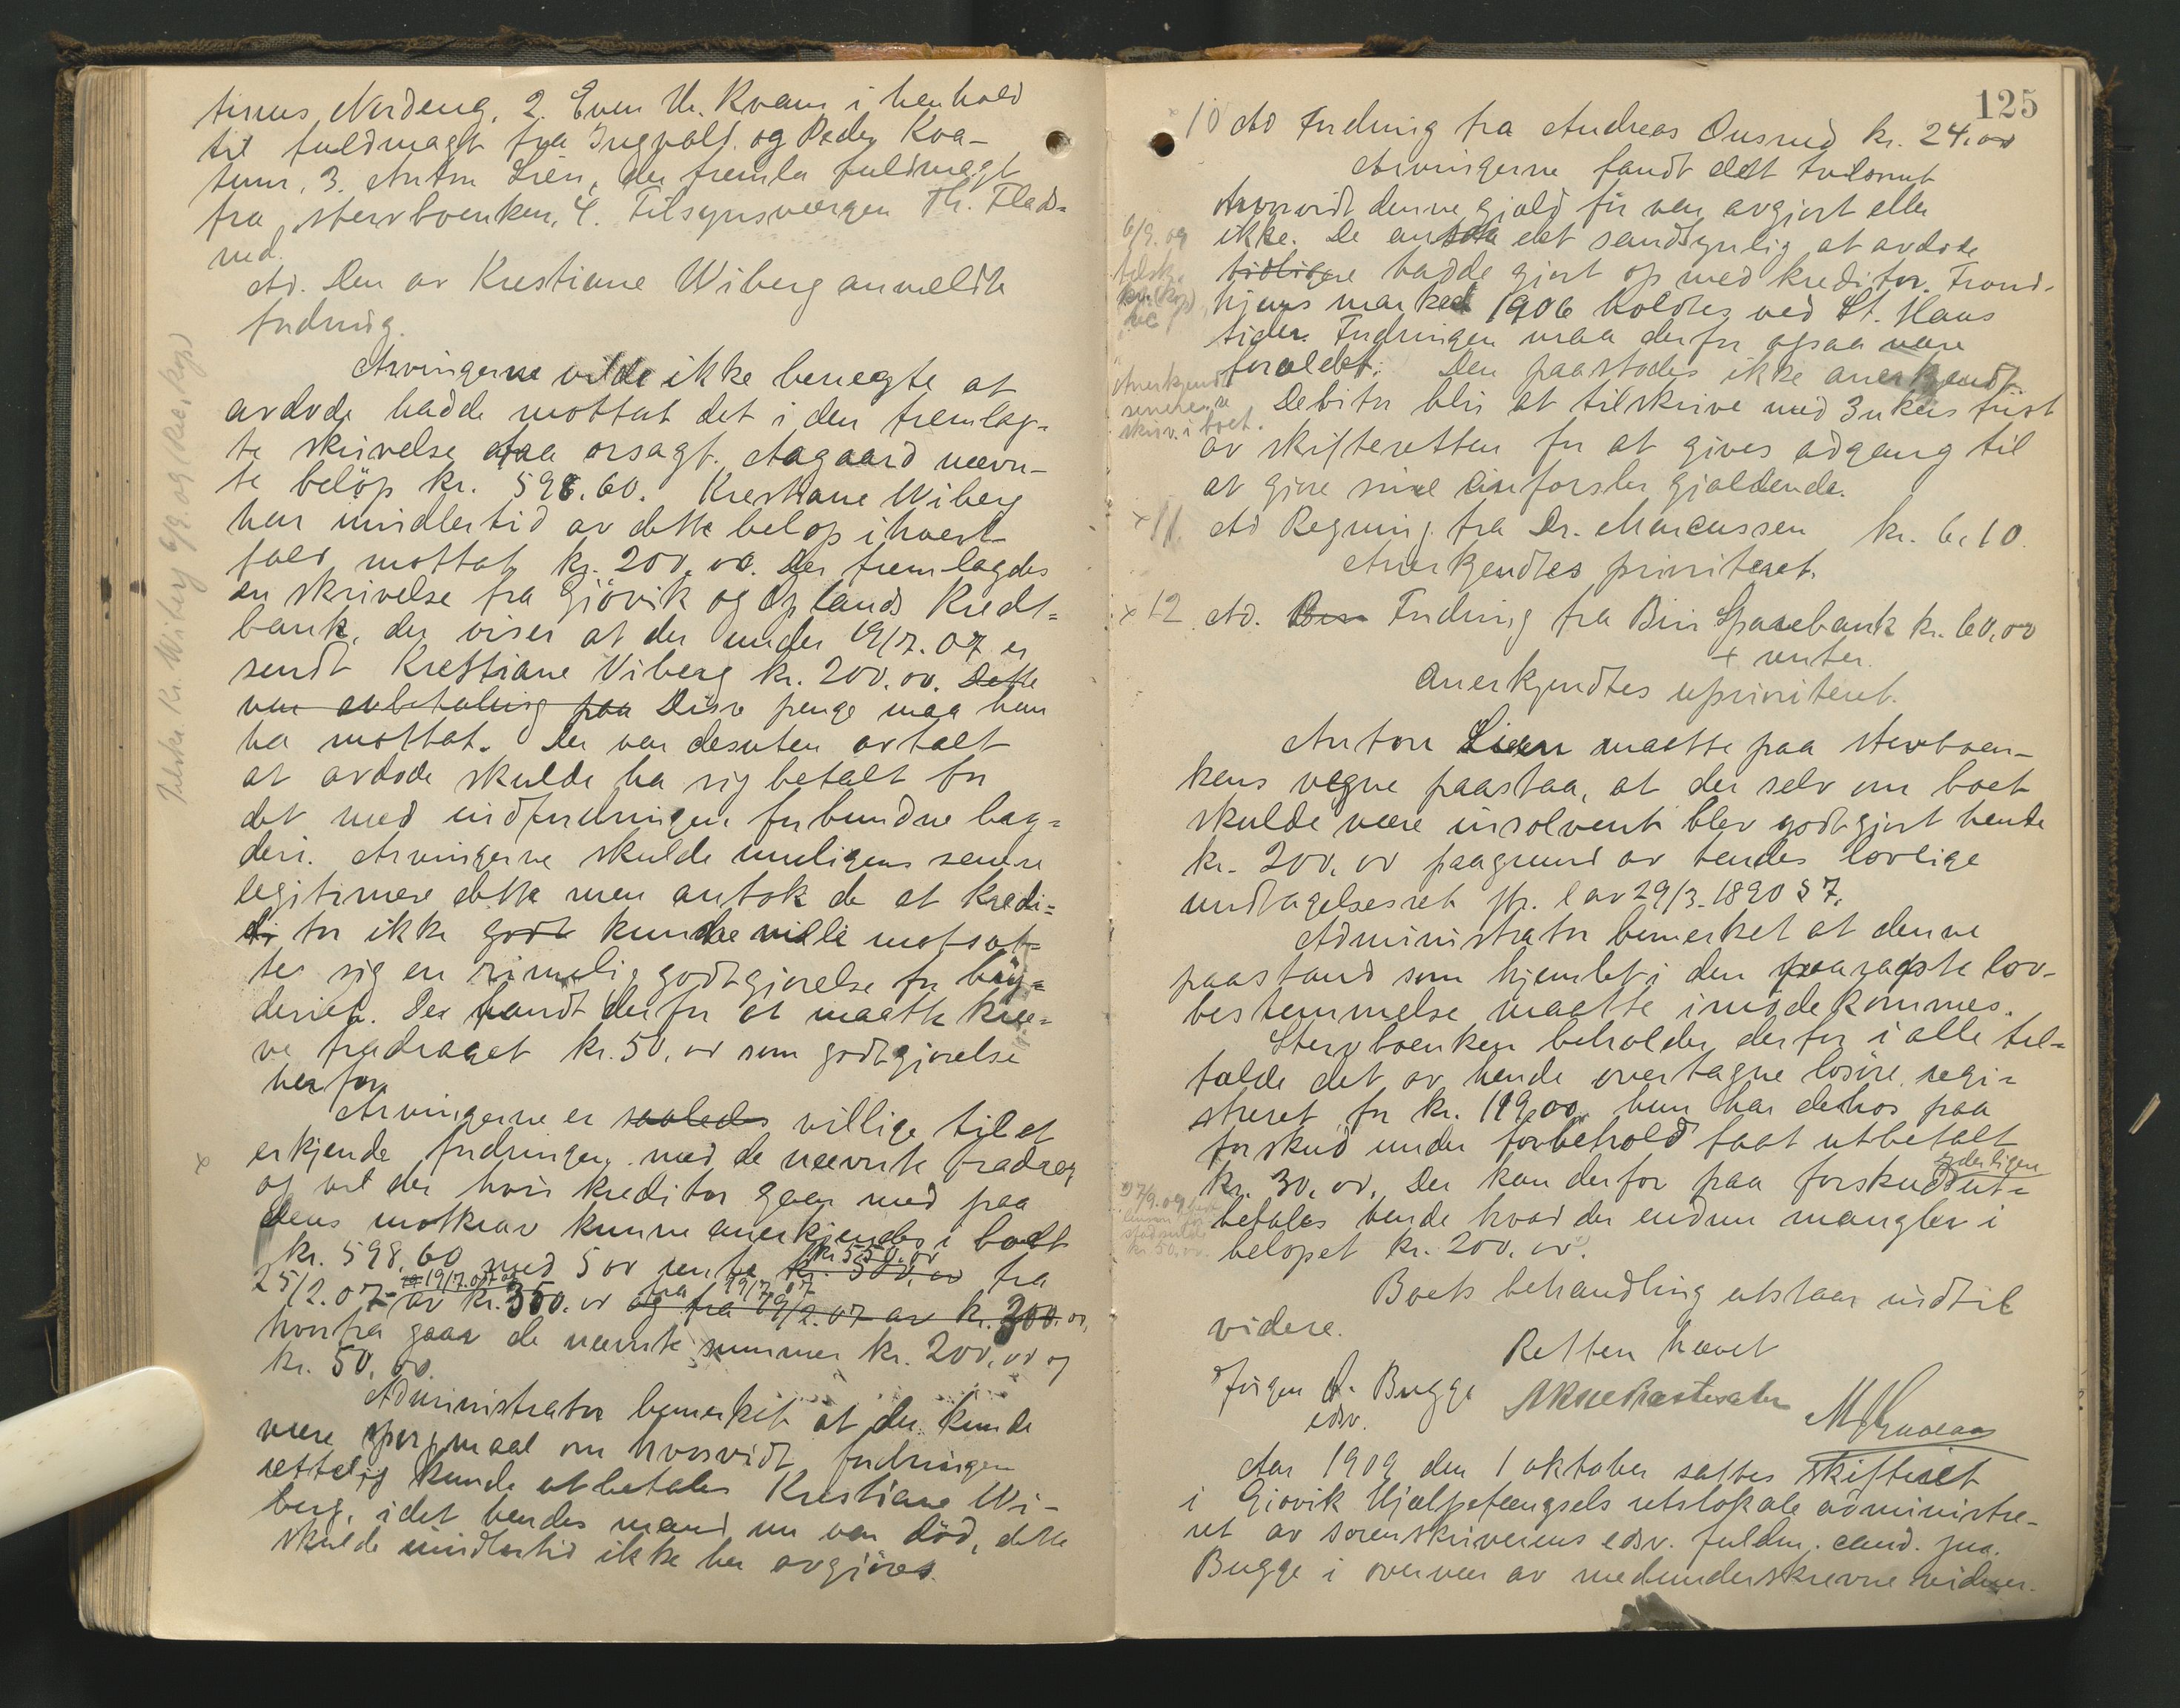 tinus Nordeng, 2. Even M. Kvam i henhold
til fuldmagt fra Ingvald og Peder Kva-
tum, 3. Anton Lien, der fremla fuldmagt
fra sterboenken, 4. Tilsynsværgen Th. Flads-
rud.
Ad. Den av Kristiane Wiberg anmeldte
fordring.
Arvingerne vilde ikke benegte at
avdøde hadde mottat det i den fremlag-
te skrivelse fra orsagf. Aagaard nævn-
te beløp kr. 598.60. Kristiane Wiberg
har imidlertid av dette beløp ihvert-
fald mottat kr. 200.00. Der fremlagdes
en skrivelse fra Gjövik og Oplands Kredit-
bank, der viser at der under 19/7.07 er
sendt Kristiane Viberg kr. 200.00. Dette
var avbetaling paa Disse penge maa hun
ha mottat. Der var desuten avtalt
at avdøde skulde ha sig betalt for
det med indfordringen forbundne bry-
deri. Arvingerne skulde muligens senere
legitimere dette men antok de at kredi-
di tor ikke godt kunde ville motsæt-
te sig en rimelig godtgjørelse for bry-
deriet. De fandt derfor at maatte kræ-
ve fradraget kr. 50,00 som godtgjørelse
herfor.
Arvingerne er saaledes villige til at
erkjende fordringen med de nævnte fradrag
og vil der hvis kreditor gaar med paa
dens motkrav kunne anerkjendes i boet
kr. 598.60 med 5 % rente kr. 500.00 fra
kr 550.00
25/2.07- av kr. 350.00 og fra 19/2.07 av kr. 300.00,
19/7.07 fra 19/7 07
hvorfra gaar de nævnte summer kr. 200,00 og
kr. 50,00.
Administrator bemerket at der kunde
være spørsmaal om hvorvidt fordringen
rettelig kunde utbetales Kristiane Wi-
berg, idet hendes mand nu var död, dette
skulde imidlertid ikke her avgjöres.
Tilskr. Kr. Wiberg 6/9.09 (kopi)
125
10 Ad Fordring fra Andreas Onsrud kr. 24.00
Arvingerne fandt det tvilsomt
hvorvidt denne gjæld før var avgjort eller
ikke. De antok det sandsynlig at avdøde
tidligere hadde gjort op med kreditor. Trond-
hjems marked 1906 holdtes ved St. Hans
tider. Fordringen maa derfor ogsaa være
forældet. Den paastodes ikke anerkjendt.
Debitor blir at tilskrive med 3 ukers frist
av skifteretten for at gives adgang til
at gjøre sine anførsler gjældende.
6/9.09
tilskr.
(kopi)
Anerkjendt
senere se
skriv. i boet.
x 11. Ad Regning fra Dr. Marcussen kr. 6.10.
Anerkjendtes prioritert.
x 12. Ad. Den Fordring fra Biri Sparebank kr. 60,00
+ renter.
Anerkjendtes uprioritert.
Anton Lien maatte paa sterboen-
kens vegne paastaa, at der selv om boet
skulde være insolvent blev godtgjort hende
kr. 200,00 paagrund av hendes lovlige
undtagelsesret jfr. l av 29/3.1890 § 7.
Administrator bemerket at denne
paastand som hjemlet i den paaragte lov-
bestemmelse maatte imødekommes.
Sterboenken beholder derfor i alle til-
fælde det av hende overtagne løsøre, regi-
streret for kr. 119,00, hun har dehos paa
forskud under forbehold faat utbetalt
kr. 30,00. Der kan derfor paa forskud ut-
yderligere
betales hende hvad der endnu mangler i
beløpet kr. 200,00.
27/9.09
kr. 50,00.
Boets behandling utstaar indtil
videre.
Retten hævet
Jørgen A. Bugge
edsv.
Aar 1909 den 1 oktober sattes skifteret
i Gjøvik Hjælpefængsels retslokale administre-
ret av sorenskriverens edsv. fuldm. cand. jur.
Bugge i overvær av medunderskrevne vidner.